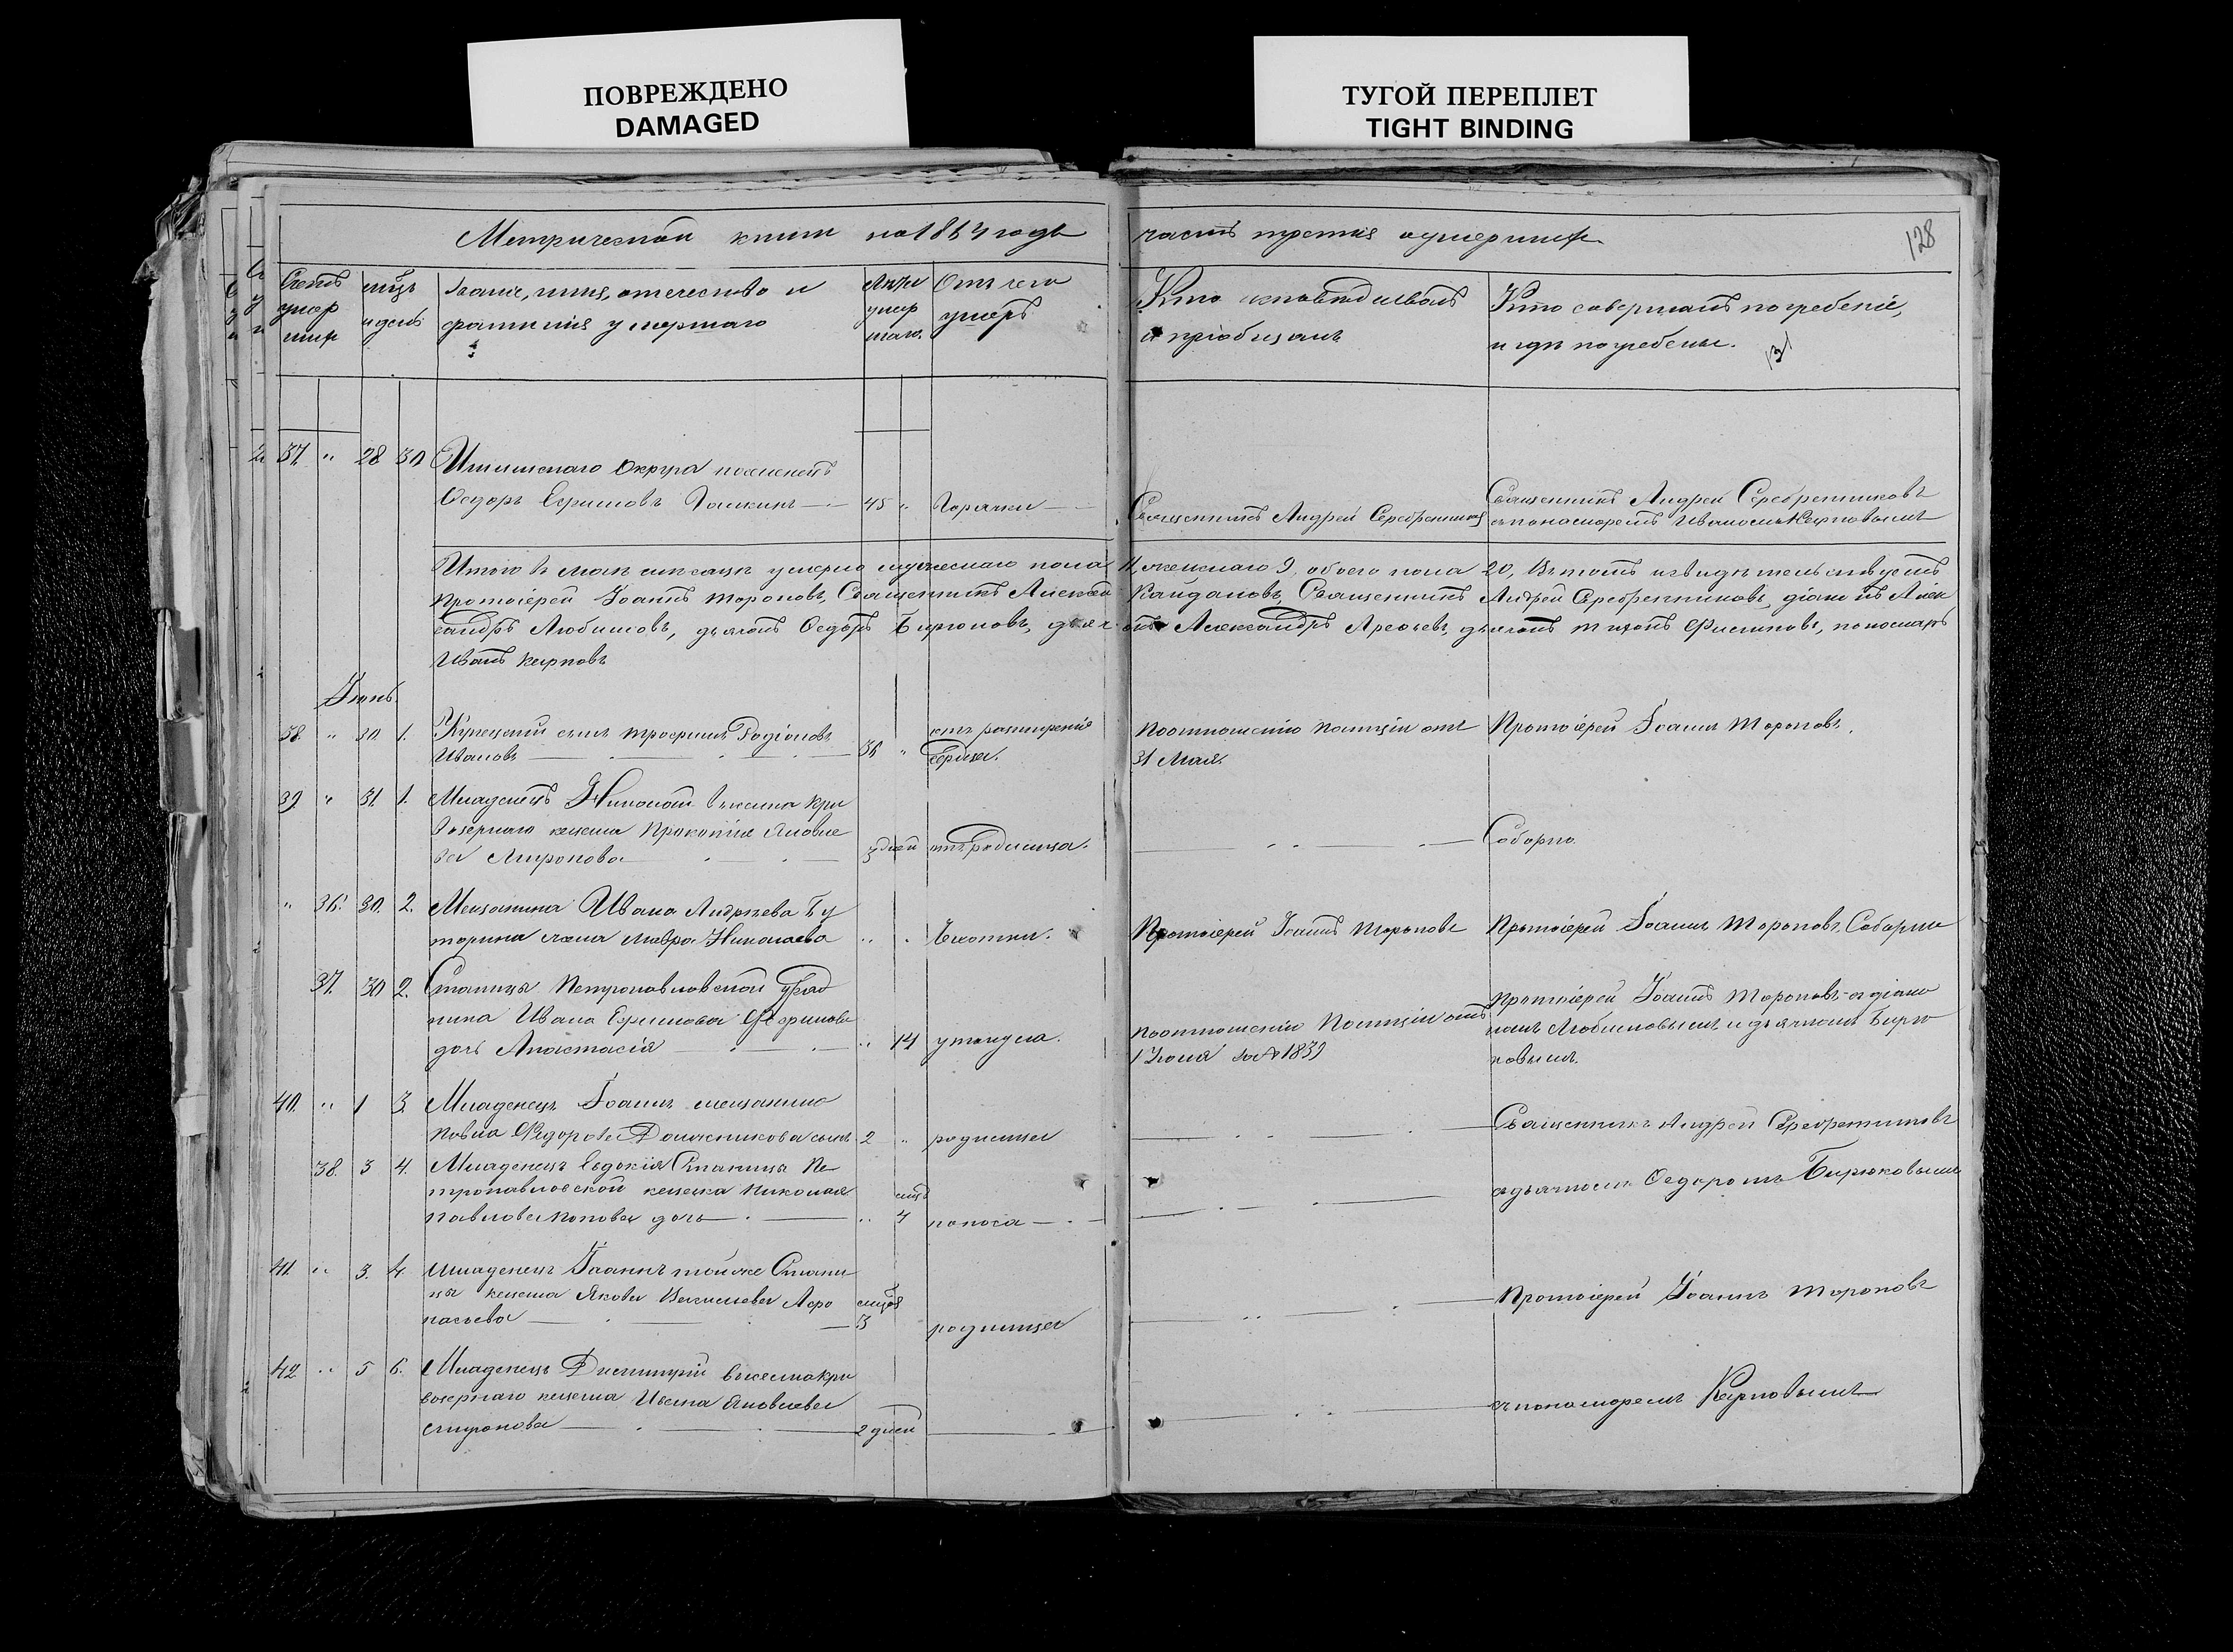 ПОВРЕЖДЕНО
DAMAGED
ТУГОЙ ПЕРЕПЛЕТ
TIGHT BINDING
128
Метрической книги на 1864 годъ
часть третія о умершихъ
Счетъ умер шихъ
мѣцъ и день
Званіе, имя, отчество и
фамилія умершаго
Лѣта умер шаго.
Отъ чего
умеръ
Кто исповѣдывалъ
и пріобщалъ
Кто совершалъ погребеніе,
и гдѣ погребены.
37. " 28 30 Ишимскаго Округа поселенецъ
Ѳедоръ Ефимовъ 45 " Горячки Священникъ Андрей Серебренников
Священникъ Андрей Серебренниковъ
съ пономоремъ Иваномъ Карповымъ
Итого в маѣ мѣсяцѣ умерло мужескаго пола 11, женскаго 9, обоего пола 20, Въ томъ и свидѣтельствуетъ
Протоіерей Іоаннъ Тороповъ, Священникъ Алексѣй Кайдаловъ, Священникъ Андрей Серебренниковъ, діаконъ Алек
сандръ Любимовъ, дьячекъ Ѳедоръ Бирюковъ, дьячекъ Александръ Арефьевъ, дьячекъ Тихонъ Филиповъ, пономарь
Иванъ Карповъ
Іюнь.
38. " 30 1. Купецкій сынъ Трофимъ Родіоновъ
Ивановъ 36 " отъ разширенія
сердца.
По отношенію Полиціи отъ
31 Мая.
Протоіерей Іоаннъ Тороповъ.
39 " 31. 1. Младенецъ Николай въ села Кри
возернаго казака Прокопія Яковле
ва Миронова 3 дней отъ родимца.
Соборно.
" 36. 30. 2. Мещанина Ивана Андрѣева Бу
торина жена Мавра Николаева " " Чахотки. Протоіерей Іоаннъ Тороповъ Протоіерей Іоаннъ Тороповъ Соборно
37. 30 2. Станицы Петропавловской Уряд
ника Ивана Ефимова
дочь Анастасія " 14 утонула.
по отношенію Полиціи отъ
1 Іюня за № 1839
Протоіерей Іоаннъ Тороповъ съ діако
номъ Любимовымъ и дьячкомъ Бирю
ковымъ.
40. " 1 3. Младенецъ Іоаннъ мещанина
Павла Федорова сынъ 2 " родимца
Священникъ Андрей Серебренниковъ
38. 3 4. Младенецъ Евдокія Станицы Пе
тропавловской казака Николая
Павлова Попова дочь " 4 мѣц поноса
съ дьячкомъ Ѳедоромъ Бирюковымъ
41. " 3. 4. младенецъ Іоаннъ той же Стани
цы казака Якова Васильева Афо
насьева 3 мѣцъ родимца
Протоіерей Іоаннъ Тороповъ
42. " 5 6. Младенецъ Димитрій въ села Кри
возернаго казака Ивана Яковлева
Миронова 2 дней
съ пономоремъ Карповымъ